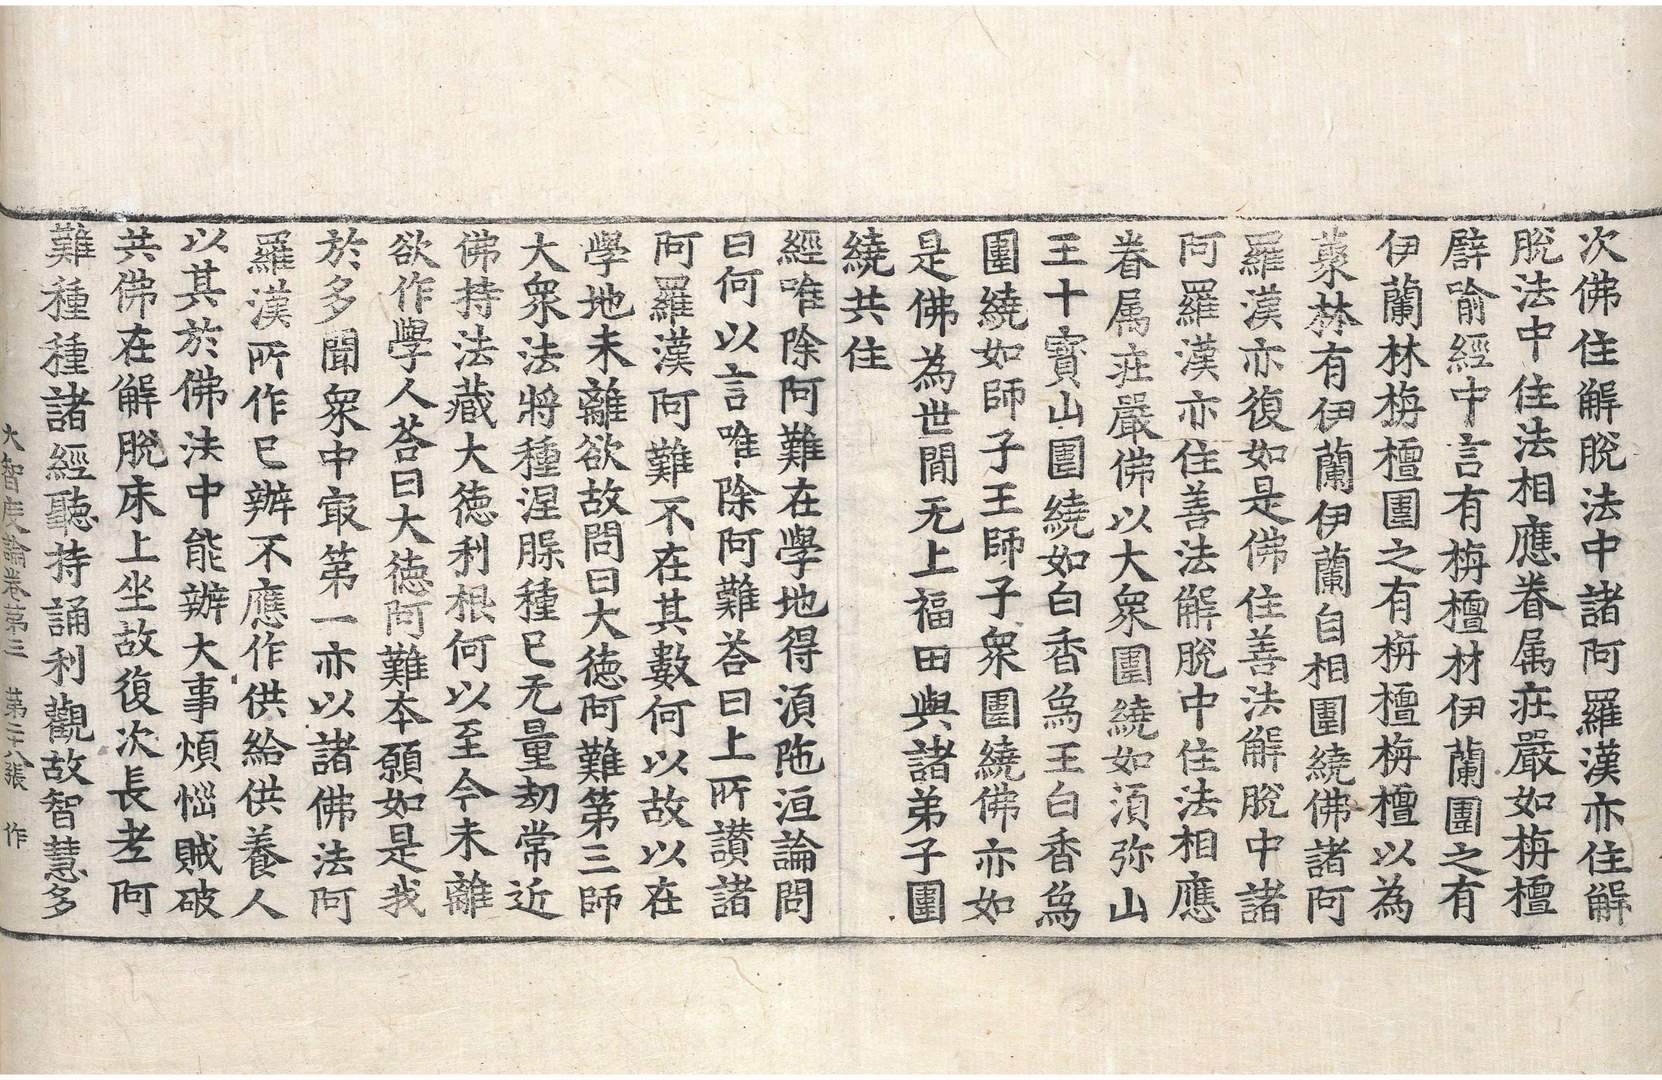 次佛住解脫法中諸阿羅漢亦住解
脫法中住法相應眷属庄嚴如栴檀
譬喻經中言有栴檀材伊蘭圍之有
伊蘭林栴檀圍之有栴檀栴檀以為
藂林有伊蘭伊蘭自相圍繞佛諸阿
羅漢亦復如是佛住善法解脫中諸
阿羅漢亦住善法解脫中住法相應
眷属庄嚴佛以大衆圍繞如湏弥山
王十寶山圍繞如白香爲王白香爲
圍繞如師子王師子衆圍繞佛亦如
是佛為世間无上福田與諸弟子圍
繞共住
經唯除阿難在學地得湏陁洹論問
曰何以言唯除阿難荅曰上所讃諸
阿羅漢阿難不在其數何以故以在
學地未離欲故問曰大德阿難第三師
大衆法將種涅槃種已无量劫常近
佛持法藏大德利根何以至今未離
欲作學人荅曰大德阿難本願如是我
於多聞衆中㝡第一亦以諸佛法阿
羅漢所作已辦不應作供給供養人
以其於佛法中能辦大事煩惱賊破
共佛在解脫床上坐故復次長老阿
難種種諸經聽持誦利觀故智慧多
大智度論卷第三 第二十八張 作